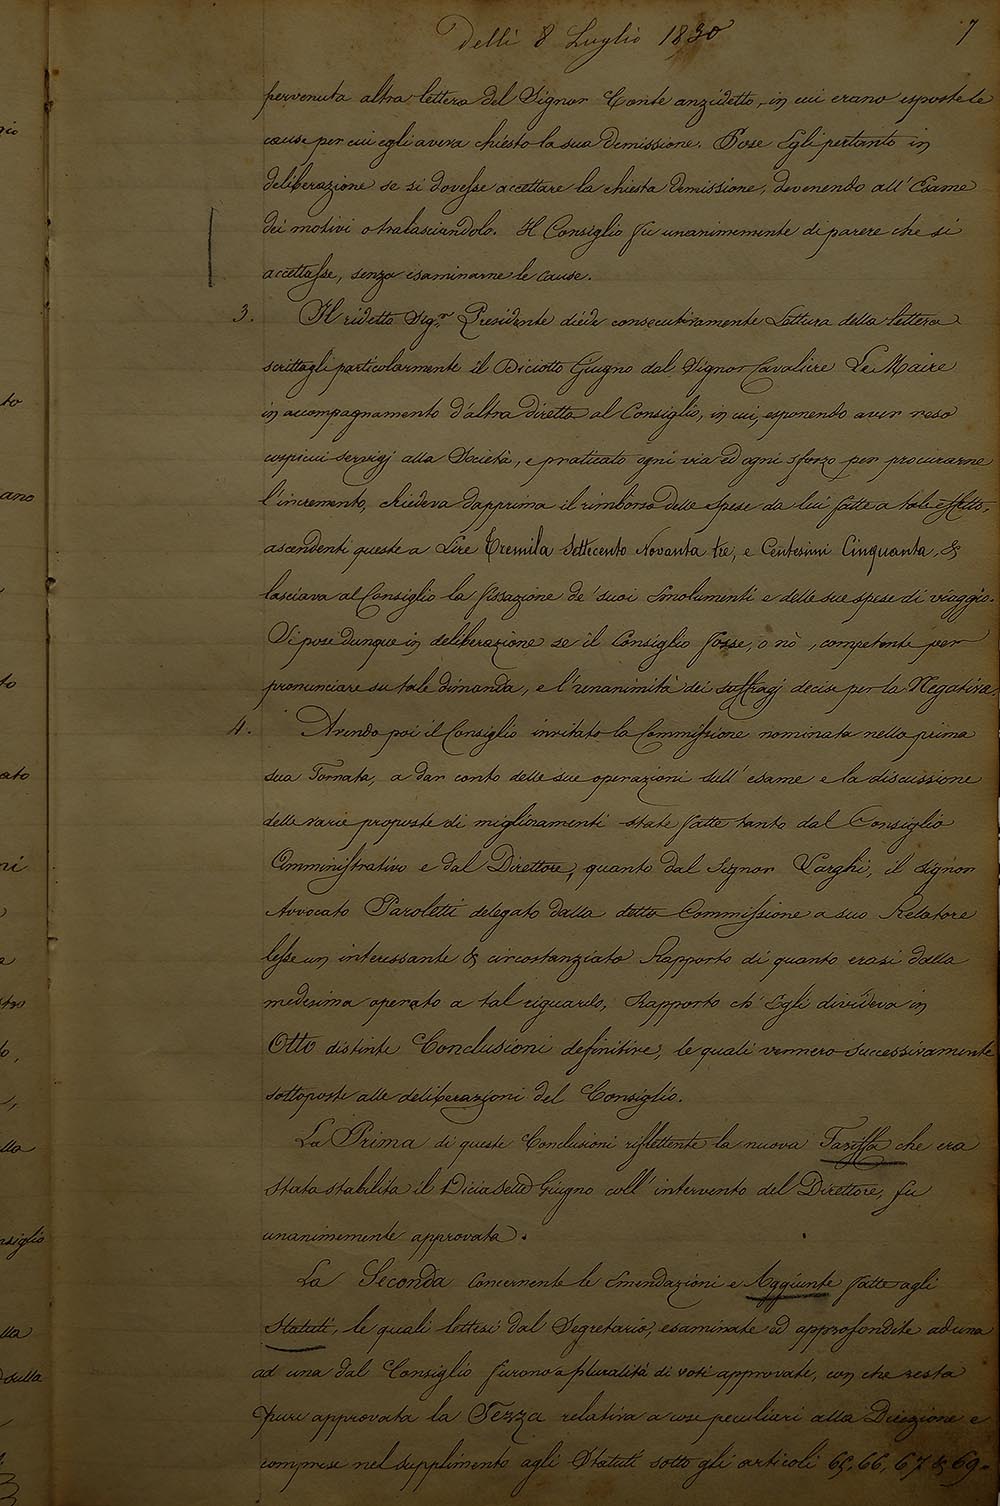 Delli 8 Luglio 1830
7
pervenuta altra lettera del Signor Conte anzidetto, in cui erano esposte le
cause per cui egli aveva chiesto la sua Demissione. Pose Egli pertanto in
deliberazione se si dovesse accettare la chiesta Demissione, devenendo all'Esame
dei motivi o tralasciandolo. Il Consiglio fù unanimemente di parere che si
accettasse, senza esaminarne le cause.
3. Il ridetto Sig.r Presidente diede consecutivamente Lettura della lettera
scrittagli particolarmente il Diciotto Giugno dal Signor Cavaliere Le Maire
in accompagnamento d'altra diretta al Consiglio, in cui, esponendo aver reso
cospicui servigj alla Società, e praticato ogni via ed ogni sforzo per procurarne
l'incremento, chiedeva dapprima il rimborso delle Spese da lui fatte a tale effetto,
ascendenti queste a Lire Tremila Settecento Novanta tre, e Centesimi Cinquanta, &
lasciava al Consiglio la fissazione de' suoi Emolumenti e delle sue spese di viaggio.
Si pose dunque in deliberazione se il Consiglio fosse, o nò, competente per
pronunciare su tale dimanda, e l'unanimità dei suffragj decise per la Negativa.
4. Avendo poi il Consiglio invitato la Commissione nominata nella prima
sua Tornata, a dar conto delle sue operazioni sull'esame e la discussione
delle varie proposte di miglioramenti state fatte tanto dal Consiglio
Amministrativo e dal Direttore, quanto dal Signor Varghi, il Signor
Avvocato Paroletti delegato dalla detta Commissione a suo Relatore
lesse un interessante & circostanziato Rapporto di quanto erasi dalla
medesima operato a tal riguardo, Rapporto ch'Egli divideva in
Otto distinte Conclusioni definitive, le quali vennero successivamente
sottoposte alle deliberazioni del Consiglio.
La Prima di queste Conclusioni riflettente la nuova Tariffa che era
stata stabilita il Diciasette Giugno coll'intervento del Direttore, fu
unanimemente approvata.
La Seconda concernente le Emendazioni e Aggiunte fatte agli
Statuti, le quali lettesi dal Segretario, esaminate ed approfondite ad una
ad una dal Consiglio furono a pluralità di voti approvate, con che resta
pure approvata la Terza relativa a cose peculiari alla Direzione e
comprese nel supplimento agli Statuti sotto gli articoli 65, 66, 67 & 69.